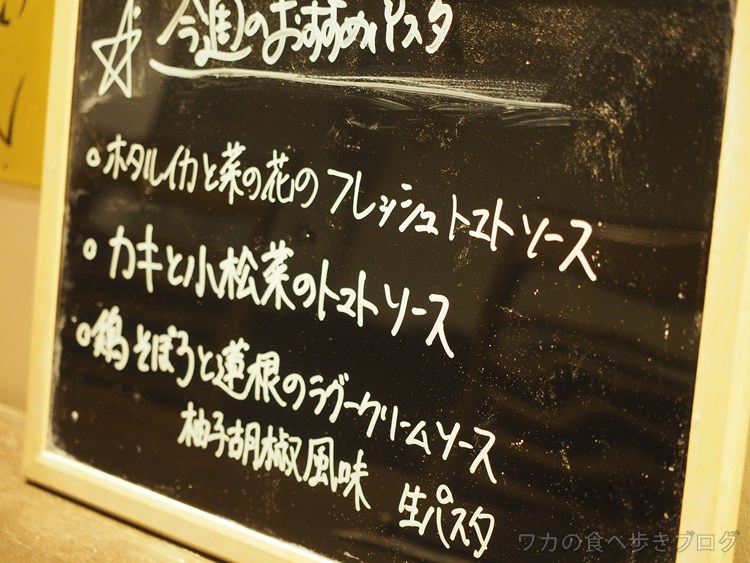 ☆ 今週のおすすめパスタ
○ ホタルイカと菜の花のフレッシュトマトソース
○ カキと小松菜のトマトソース
○ 鶏そぼろと蓮根のラグークリームソース
柚子胡椒風味 生パスタ
ワカの食べ歩きブログ